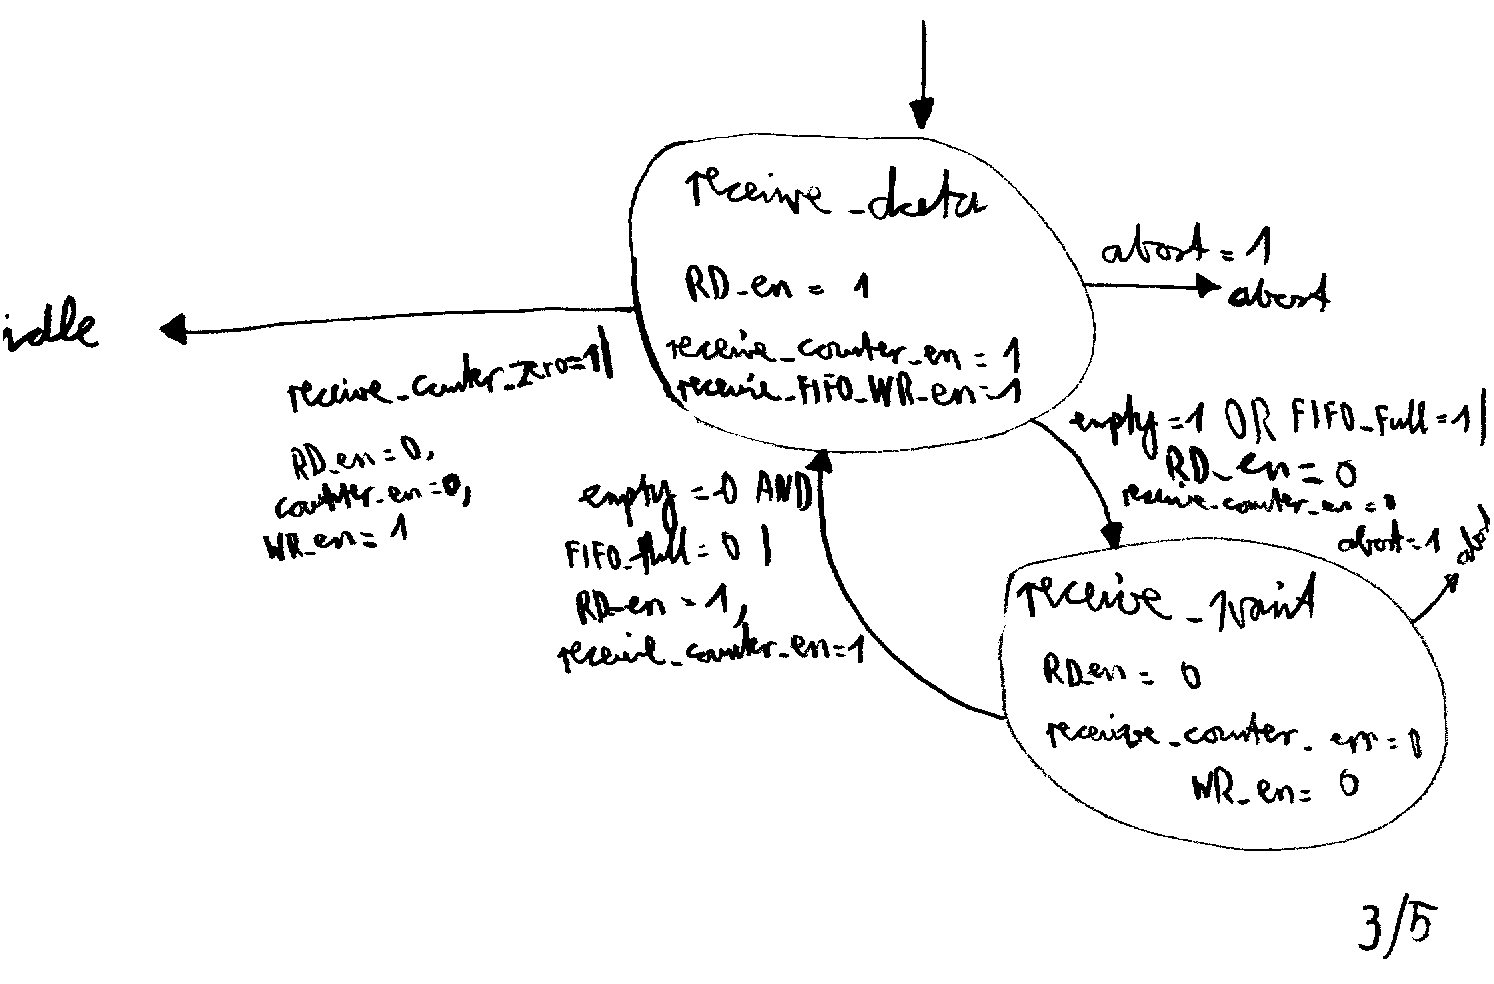 receive_data
RD_en = 1
receive_counter_en = 1
receive_FIFO_WR_en=1
abort = 1
abort
idle
receive_counter_zero=1|
RD_en=0,
counter_en=0,
WR_en=1
empty=1 OR FIFO_full=1|
RD_en=0
receive_counter_en=0
empty=0 AND
FIFO_full=0 |
RD_en=1,
receive_counter_en=1
abort=1
abort
receive_wait
RD_en = 0
receive_counter_en=0
WR_en= 0
3/5